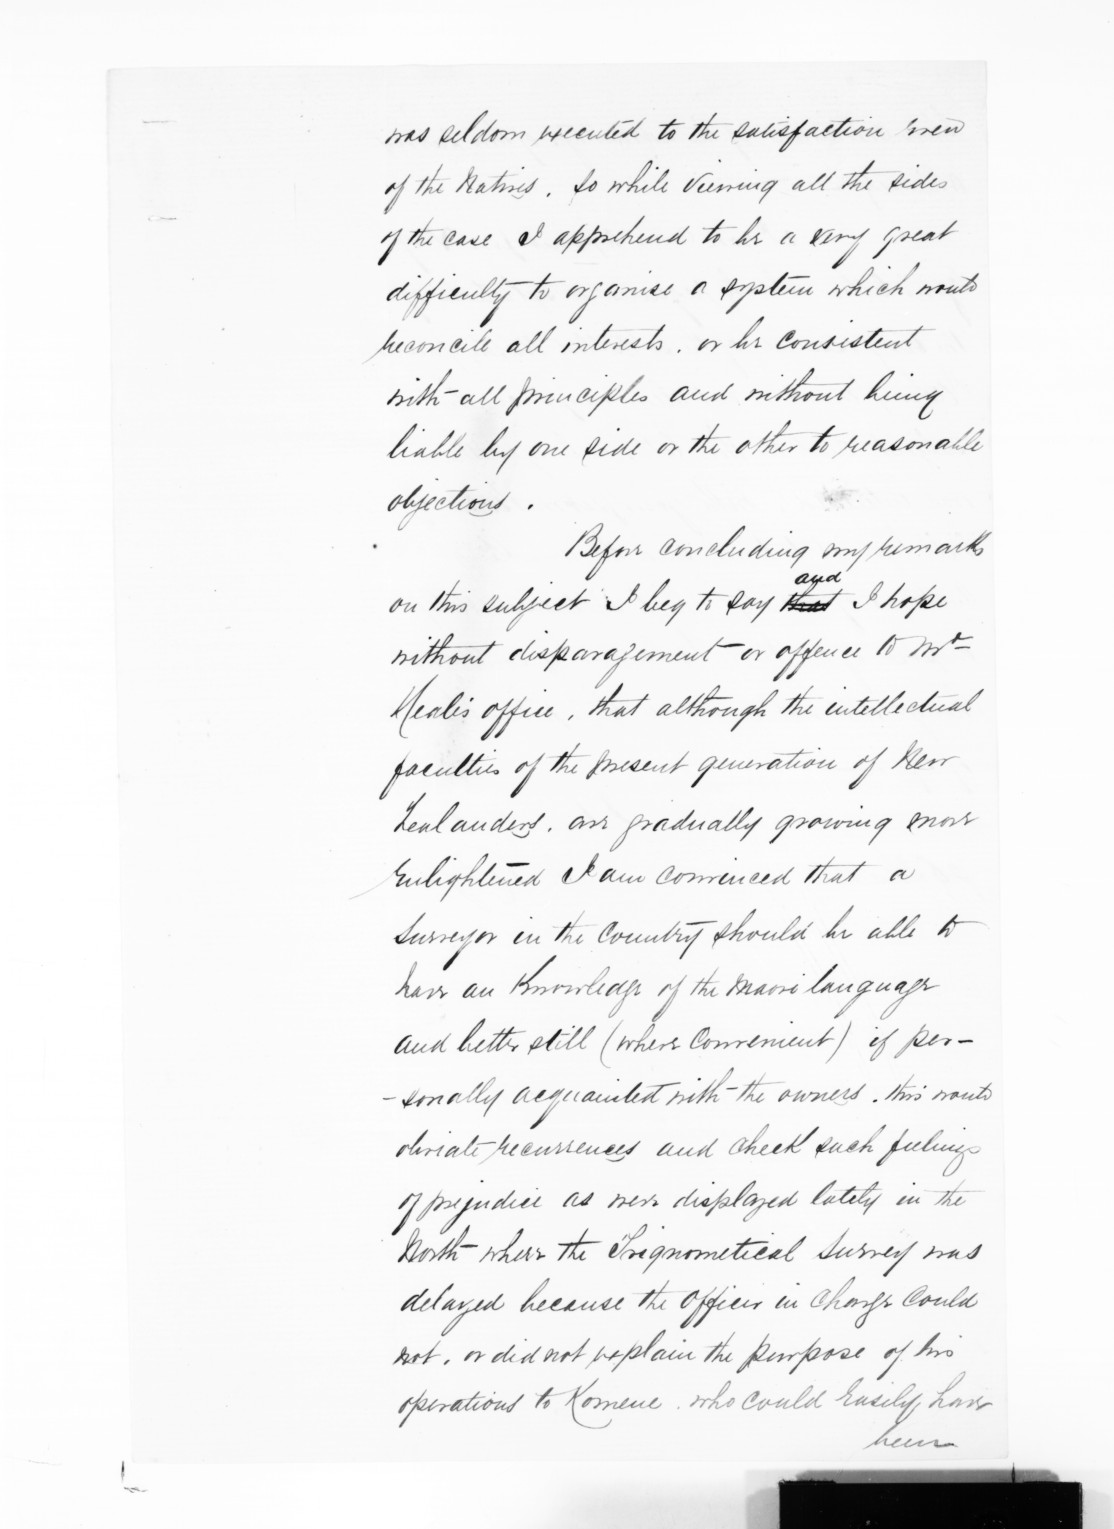 was seldom executed to the satisfaction even
of the Natives. So while viewing all the sides
of the case I apprehend to be a very great
difficulty to organise a system which would
reconcile all interests. or be consistent
with all principles and without being
liable by one side or the other to reasonable
objections.
Before concluding my remarks
on this subject I beg to say that and I hope
without disparagement or offence to Mr
Heale's office, that although the intellectual
faculties of the present generation of New
Zealanders. are gradually growing more
enlightened I am convinced that a
Surveyor in the Country should be able to
have an Knowledge of the Maori language
and better still (where convenient) if per-
-sonally acquainted with the owners. this would
obviate recurrences and check such feelings
of prejudice as were displayed lately in the
North where the Trignometical Survey was
delayed because the Officer in charge could
not. or did not explain the purpose of his
operations to Komene. who could easily have
been